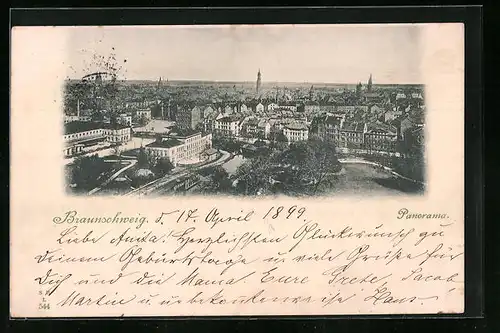 Braunschweig. d. 17. April 1899. Panorama.
Liebe Anita! Herzlichsten Glückwunsch zu
Deinem Geburtstage u. viele Grüße für
Dich und die Mama. Eure Grete, Jacob
Martin u. unbekannterweise Hans.
544